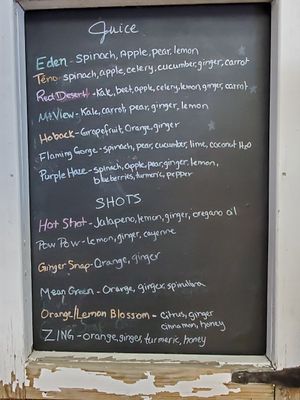 Juice
Eden - spinach, Apple, pear, lemon
Teno - spinach, apple, celery, cucumber, ginger, carrot
Red Desert - Kale, beet, apple, celery, lemon, ginger, carrot
Mt View - Kale, carrot, pear, ginger, lemon
Hoback - Grapefruit, Orange, ginger
Flaming Gorge - spinach, pear, cucumber, lime, coconut H2O
Purple Haze - spinach, apple, pear, ginger, lemon,
blueberries, turmeric, pepper
SHOTS
Hot Shot - Jalapeno, lemon, ginger, oregano oil
Pow Pow - lemon, ginger, cayenne
Ginger Snap - Orange, ginger
Mean Green - Orange, ginger, spirulina
Orange/Lemon Blossom - citrus, ginger
cinnamon, honey
ZING - orange, ginger, turmeric, honey